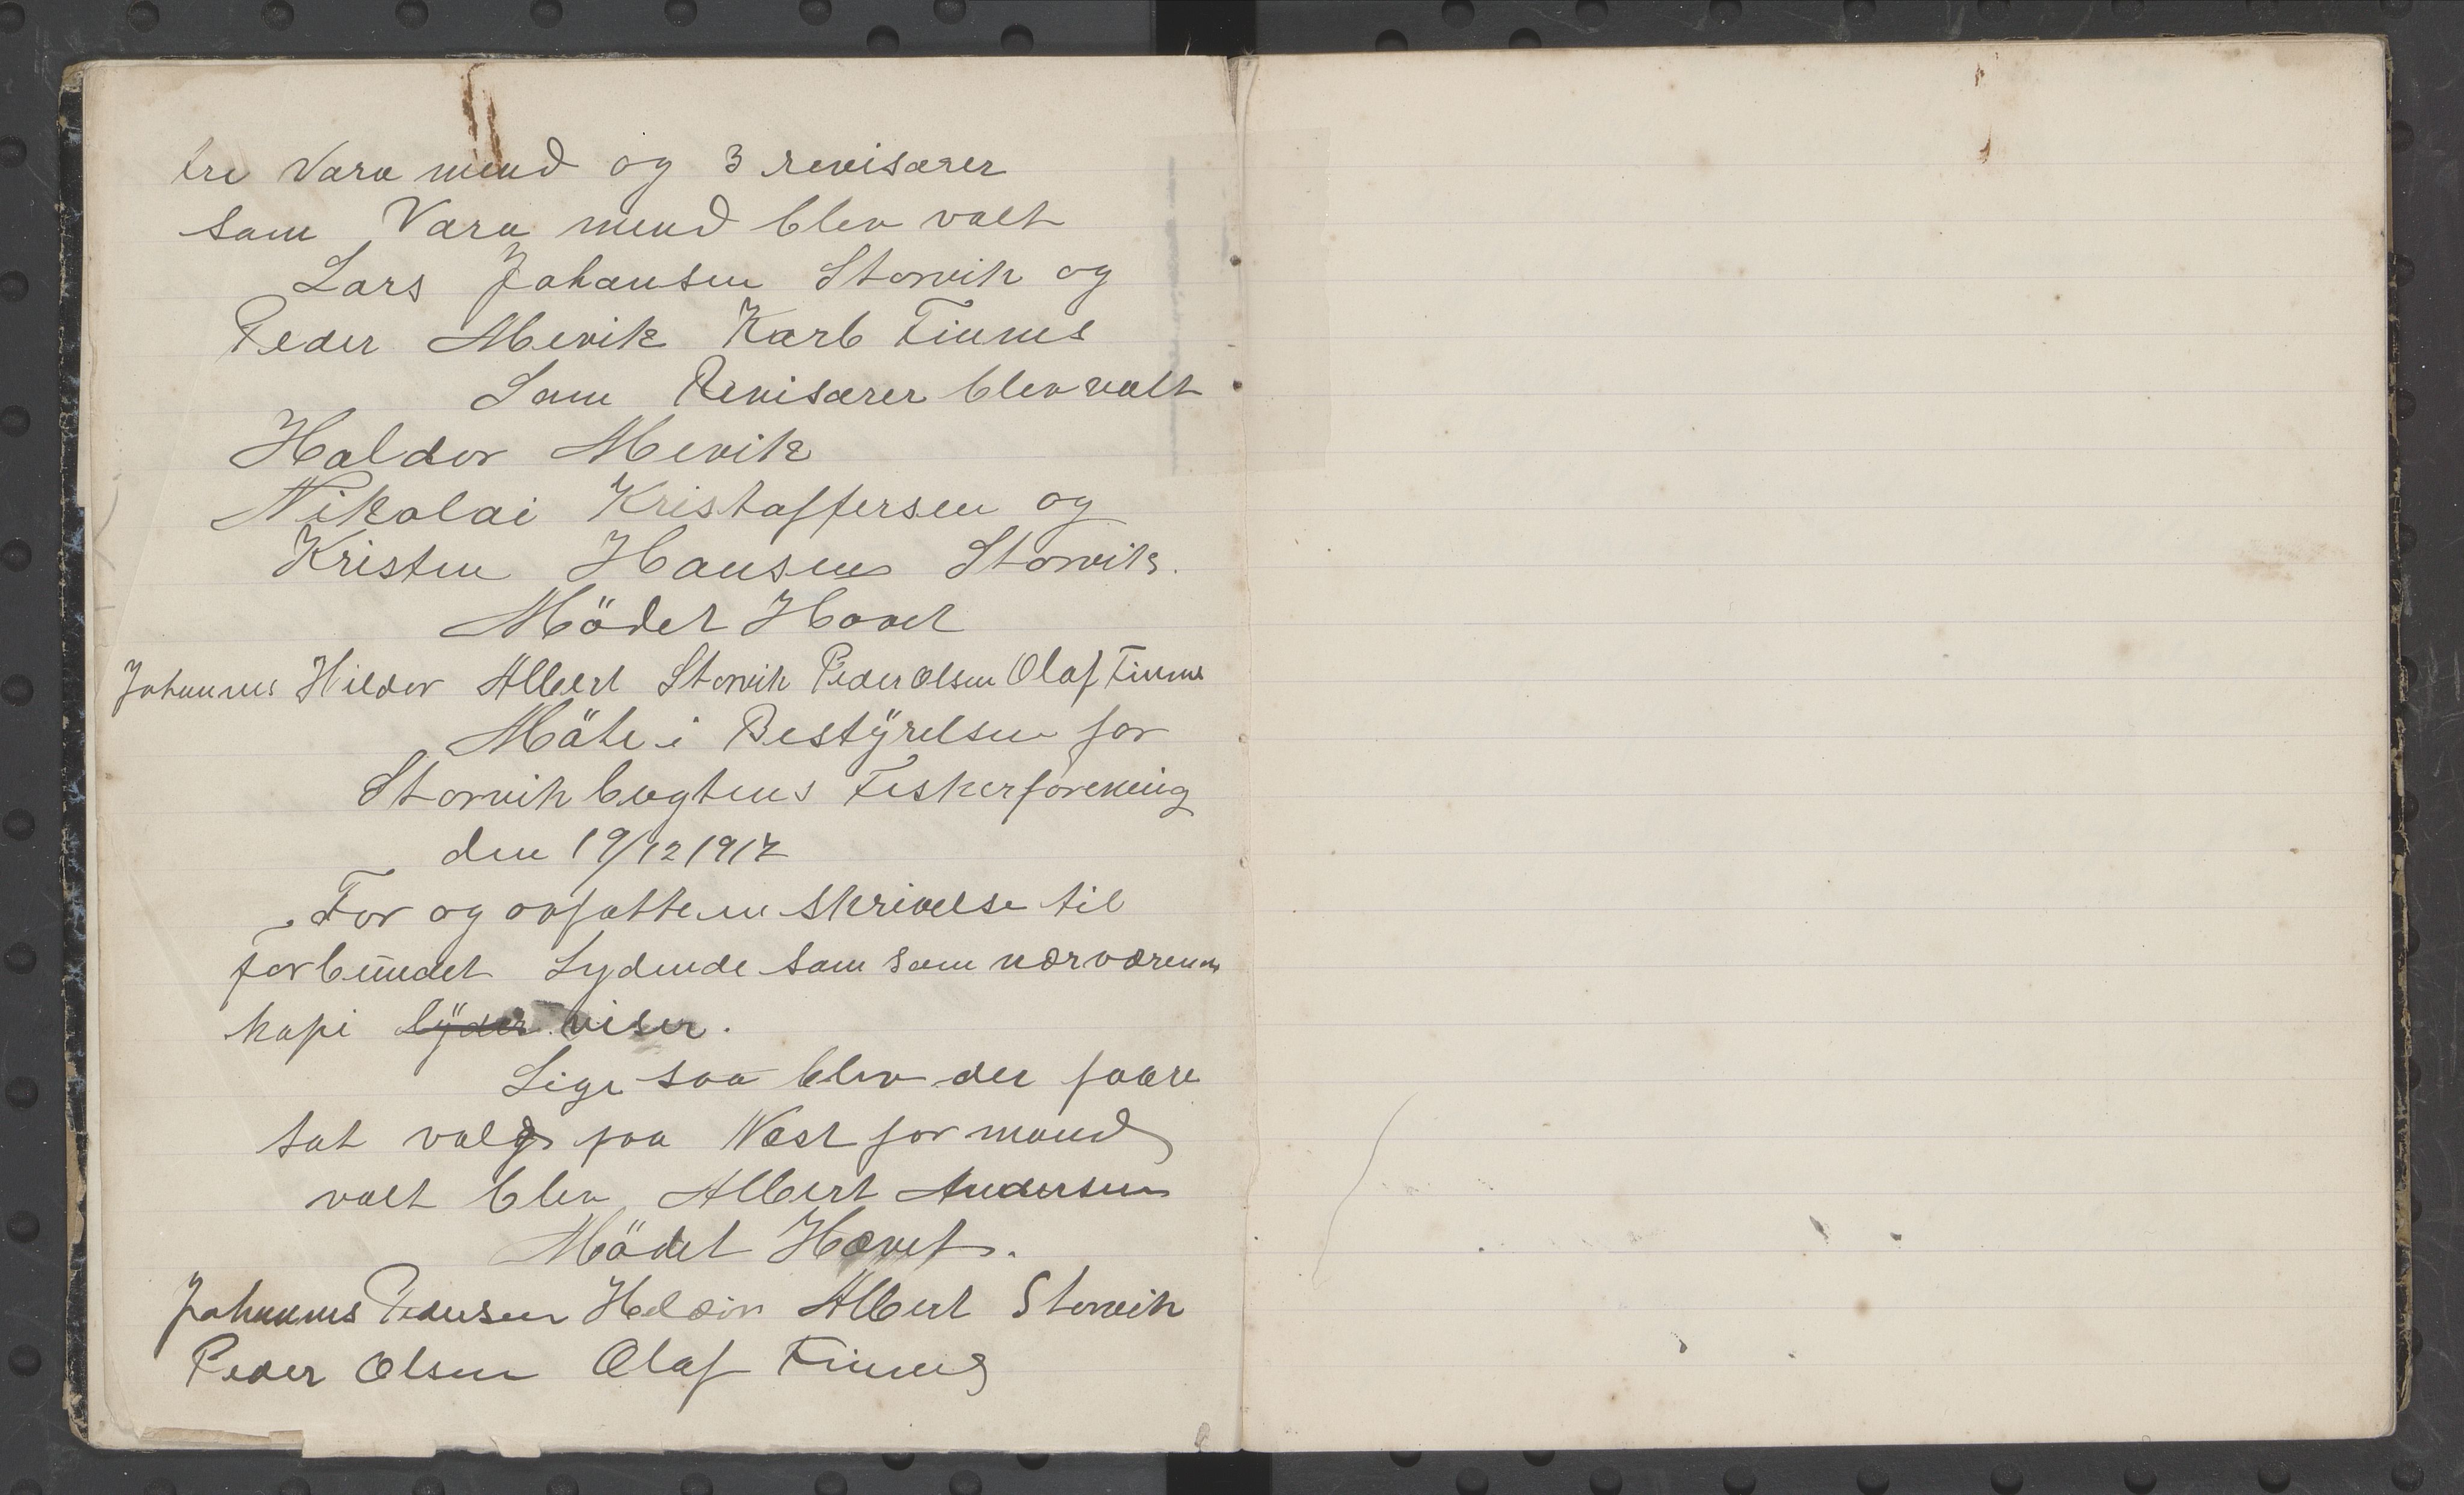 tre Vara mend og 3 revisorer
som Vara mend blev valt
Lars Johansen Storvik og
Peder Mevik Karl Finnes
Som Revisorer blev valt
Haldor Mevik
Nikolai Kristoffersen og
Kristen Hansen Storvik.
Mödet Hævet
Johannes Hildor Albert Storvik Peder Olsen Olaf Finnes
Möte i Bestÿrelsen for
Storvikbugtens Fiskerforening
den 19/12 1917
For og avfatte en skrivelse til
forbundet Lydende som som nærværende
kopi lÿder viser.
Lige saa blev der fore
tat valg paa Næst formand
valt blev Albert Andersen
Mödet Hævet.
Johannes Pedersen Albert Storvik
Peder Olsen Olaf Finnes